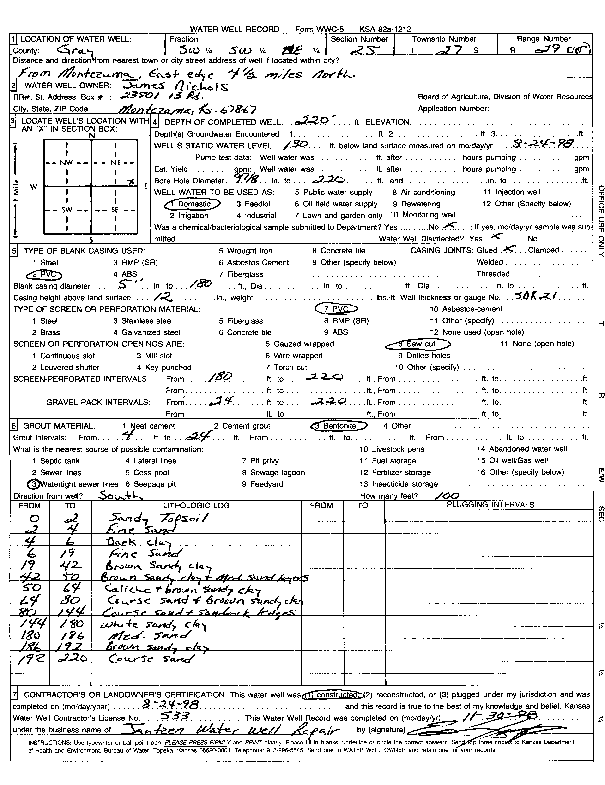 WATER WELL RECORD Form WWC-5 KSA 82a-1212
1 LOCATION OF WATER WELL: Fraction Section Number Township Number Range Number
County: Gray SW ¼ SW ¼ NE ¼ 25 T 27 S R 29 E/W
Distance and direction from nearest town or city street address of well if located within city?
From Montezuma, East edge 4½ miles North
2 WATER WELL OWNER: James Nichols
RR#, St. Address, Box # : 23501 13 Rd. Board of Agriculture, Division of Water Resources
City, State, ZIP Code Montezuma, Ks 67867 Application Number:
3 LOCATE WELL'S LOCATION WITH AN "X" IN SECTION BOX:
N
NW NE
W X
SW SE
S
1 Mile
4 DEPTH OF COMPLETED WELL 220 ft. ELEVATION:
Depth(s) Groundwater Encountered 1. ft. 2. ft. 3. ft.
WELL'S STATIC WATER LEVEL 130 ft. below land surface measured on mo/day/yr 8-24-98
Pump test data: Well water was ft. after hours pumping gpm
Est. Yield gpm: Well water was ft. after hours pumping gpm
Bore Hole Diameter 9 7/8 in. to 220 ft. and in. to ft.
WELL WATER TO BE USED AS: 5 Public water supply 8 Air conditioning 11 Injection well
1 Domestic 3 Feedlot 6 Oil field water supply 9 Dewatering 12 Other (Specify below)
2 Irrigation 4 Industrial 7 Lawn and garden only 10 Monitoring well
Was a chemical/bacteriological sample submitted to Department? Yes No X ; If yes, mo/day/yr sample was sub-
mitted Water Well Disinfected? Yes X No
5 TYPE OF BLANK CASING USED: 5 Wrought iron 8 Concrete tile CASING JOINTS: Glued X Clamped
1 Steel 3 RMP (SR) 6 Asbestos-Cement 9 Other (specify below) Welded
2 PVC 4 ABS 7 Fiberglass Threaded
Blank casing diameter 5" in. to 180 ft., Dia in. to ft., Dia in. to ft.
Casing height above land surface 12 in., weight lbs./ft. Wall thickness or gauge No. SDR21
TYPE OF SCREEN OR PERFORATION MATERIAL: 7 PVC 10 Asbestos-cement
1 Steel 3 Stainless steel 5 Fiberglass 8 RMP (SR) 11 Other (specify)
2 Brass 4 Galvanized steel 6 Concrete tile 9 ABS 12 None used (open hole)
SCREEN OR PERFORATION OPENINGS ARE: 5 Gauzed wrapped 8 Saw cut 11 None (open hole)
1 Continuous slot 3 Mill slot 6 Wire wrapped 9 Drilled holes
2 Louvered shutter 4 Key punched 7 Torch cut 10 Other (specify)
SCREEN-PERFORATED INTERVALS: From 180 ft. to 220 ft., From ft. to ft.
From ft. to ft., From ft. to ft.
GRAVEL PACK INTERVALS: From 24 ft. to 220 ft., From ft. to ft.
From ft. to ft., From ft. to ft.
6 GROUT MATERIAL: 1 Neat cement 2 Cement grout 3 Bentonite 4 Other
Grout Intervals: From 4 ft. to 24 ft. From ft. to ft. From ft. to ft.
What is the nearest source of possible contamination: 10 Livestock pens 14 Abandoned water well
1 Septic tank 4 Lateral lines 7 Pit privy 11 Fuel storage 15 Oil well/Gas well
2 Sewer lines 5 Cess pool 8 Sewage lagoon 12 Fertilizer storage 16 Other (specify below)
3 Watertight sewer lines 6 Seepage pit 9 Feedyard 13 Insecticide storage
Direction from well? South How many feet? 100
FROM TO LITHOLOGIC LOG FROM TO PLUGGING INTERVALS
0 2 Sandy Topsoil
2 4 Fine Sand
4 6 Dark clay
6 19 Fine Sand
19 42 Brown Sandy clay
42 50 Brown sandy clay + Med sand layers
50 64 Caliche + brown sandy clay
64 80 Course sand & broown sandy clay
80 144 Course sand +
144 180 White sandy clay
180 186 Med. Sand
186 192 Brown sandy clay
192 220 Course sand
7 CONTRACTOR'S OR LANDOWNER'S CERTIFICATION: This water well was (1) constructed, (2) reconstructed, or (3) plugged under my jurisdiction and was
completed on (mo/day/year) 8-24-98 and this record is true to the best of my knowledge and belief. Kansas
Water Well Contractor's License No. 533 This Water Well Record was completed on (mo/day/yr) 11-30-98
under the business name of Jantzen Water Well Repair by (signature)
INSTRUCTIONS: Use typewriter or ball point pen. PLEASE PRESS FIRMLY and PRINT clearly. Please fill in blanks, underline or circle the correct answers. Send top three copies to Kansas Department
of Health and Environment, Bureau of Water, Topeka, Kansas Send one to WATER WELL OWNER and retain one for your records.
OFFICE USE ONLY
T
R
E/W
SEC.